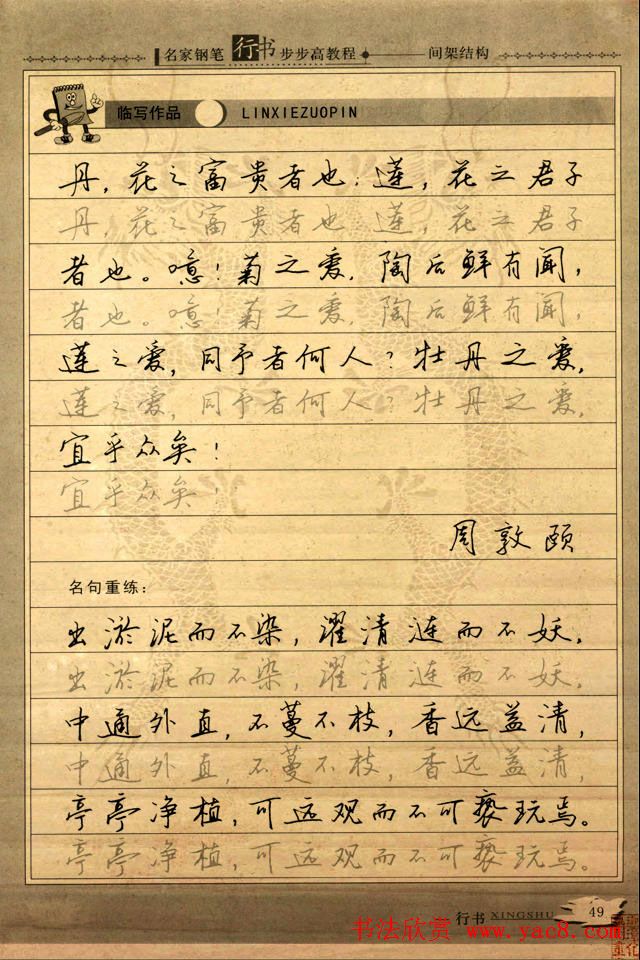 名家钢笔行书步步高教程 间架结构
临写作品 LINXIEZUOPIN
丹，花之富贵者也；莲，花之君子
丹，花之富贵者也 莲，花之君子
者也。噫！菊之爱，陶后鲜有闻，
者也。噫！菊之爱，陶后鲜有闻，
莲之爱，同予者何人？牡丹之爱，
莲之爱，同予者何人？牡丹之爱，
宜乎众矣！
宜乎众矣！
周敦颐
名句重练：
出淤泥而不染，濯清涟而不妖，
出淤泥而不染，濯清涟而不妖，
中通外直，不蔓不枝，香远益清，
中通外直，不蔓不枝，香远益清，
亭亭净植，可远观而不可亵玩焉。
亭亭净植，可远观而不可亵玩焉。
行书 XINGSHU 49
书法欣赏 www.yac8.com